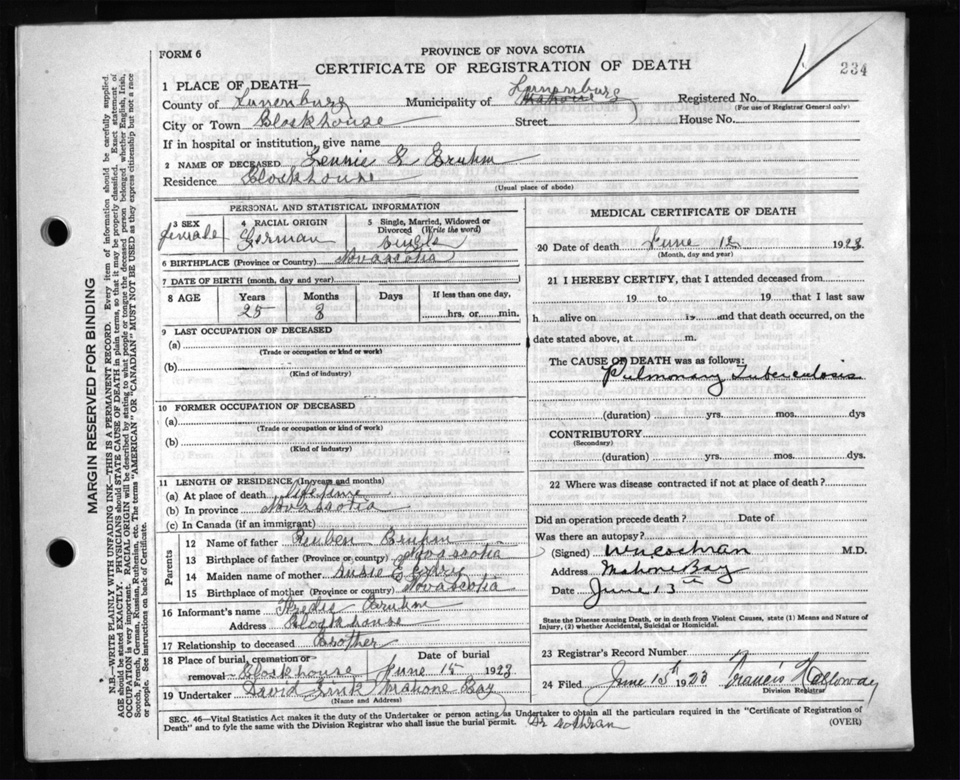 FORM 6
PROVINCE OF NOVA SCOTIA
234
CERTIFICATE OF REGISTRATION OF DEATH
1 PLACE OF DEATH—
County of Lunenburg Municipality of Lunenburg Registered No.
(For use of Registrar General only)
City or Town Blockhouse Street House No.
If in hospital or institution, give name
2 NAME OF DECEASED Bruhm
Residence Blockhouse
(Usual place of abode)
PERSONAL AND STATISTICAL INFORMATION
3 SEX female
4 RACIAL ORIGIN German
5 Single, Married, Widowed or Divorced (Write the word) Single
6 BIRTHPLACE (Province or Country) Nova Scotia
7 DATE OF BIRTH (month, day and year)
8 AGE Years Months Days If less than one day,
25 3 hrs. or min.
9 LAST OCCUPATION OF DECEASED
(a)
(Trade or occupation or kind or work)
(b)
(Kind of industry)
10 FORMER OCCUPATION OF DECEASED
(a)
(Trade or occupation or kind of work)
(b)
(Kind of industry)
11 LENGTH OF RESIDENCE (In years and months)
(a) At place of death lifetime
(b) In province Nova Scotia
(c) In Canada (if an immigrant)
Parents
12 Name of father Reuben Bruhm
13 Birthplace of father (Province or country) Nova Scotia
14 Maiden name of mother Susie E
15 Birthplace of mother (Province or country) Nova Scotia
16 Informant's name Bruhm
Address Blockhouse
17 Relationship to deceased Brother
18 Place of burial, cremation or removal— Blockhouse Date of burial June 15 1923
19 Undertaker David Mahone Bay
(Name and Address)
MEDICAL CERTIFICATE OF DEATH
20 Date of death June 12 1923
(Month, day and year)
21 I HEREBY CERTIFY, that I attended deceased from
19 to 19 that I last saw
h alive on 19 and that death occurred, on the
date stated above, at m.
The CAUSE OF DEATH was as follows:
Pulmonary Tuberculosis
(duration) yrs. mos. dys
CONTRIBUTORY
(Secondary)
(duration) yrs. mos. dys.
22 Where was disease contracted if not at place of death?
Did an operation precede death? Date of
Was there an autopsy?
(Signed) Cochran M.D.
Address Mahone Bay
Date June 13th
State the Disease causing Death, or in death from Violent Causes, state (1) Means and Nature of
Injury, (2) whether Accidental, Suicidal or Homicidal.
23 Registrar's Record Number
24 Filed June 15 1923 Francis Holloway
Division Registrar
SEC. 46—Vital Statistics Act makes it the duty of the Undertaker or person acting as Undertaker to obtain all the particulars required in the "Certificate of Registration of
Death" and to fyle the same with the Division Registrar who shall issue the burial permit. Dr Cochran
(OVER)
MARGIN RESERVED FOR BINDING
N.B.—WRITE PLAINLY WITH UNFADING INK—THIS IS A PERMANENT RECORD. Every item of information should be carefully supplied.
AGE should be stated EXACTLY. PHYSICIANS should STATE CAUSE OF DEATH in plain terms, so that it may be properly classified. Exact statement of
OCCUPATION is very important. RACIAL ORIGIN will be described by stating to what people or tongue the deceased person belonged whether English, Irish,
Scotch, French, German, Russian, Ruthenian, etc. The terms "AMERICAN" OR "CANADIAN" MUST NOT BE USED as they express citizenship but not a race
or people. See Instructions on back of Certificate.